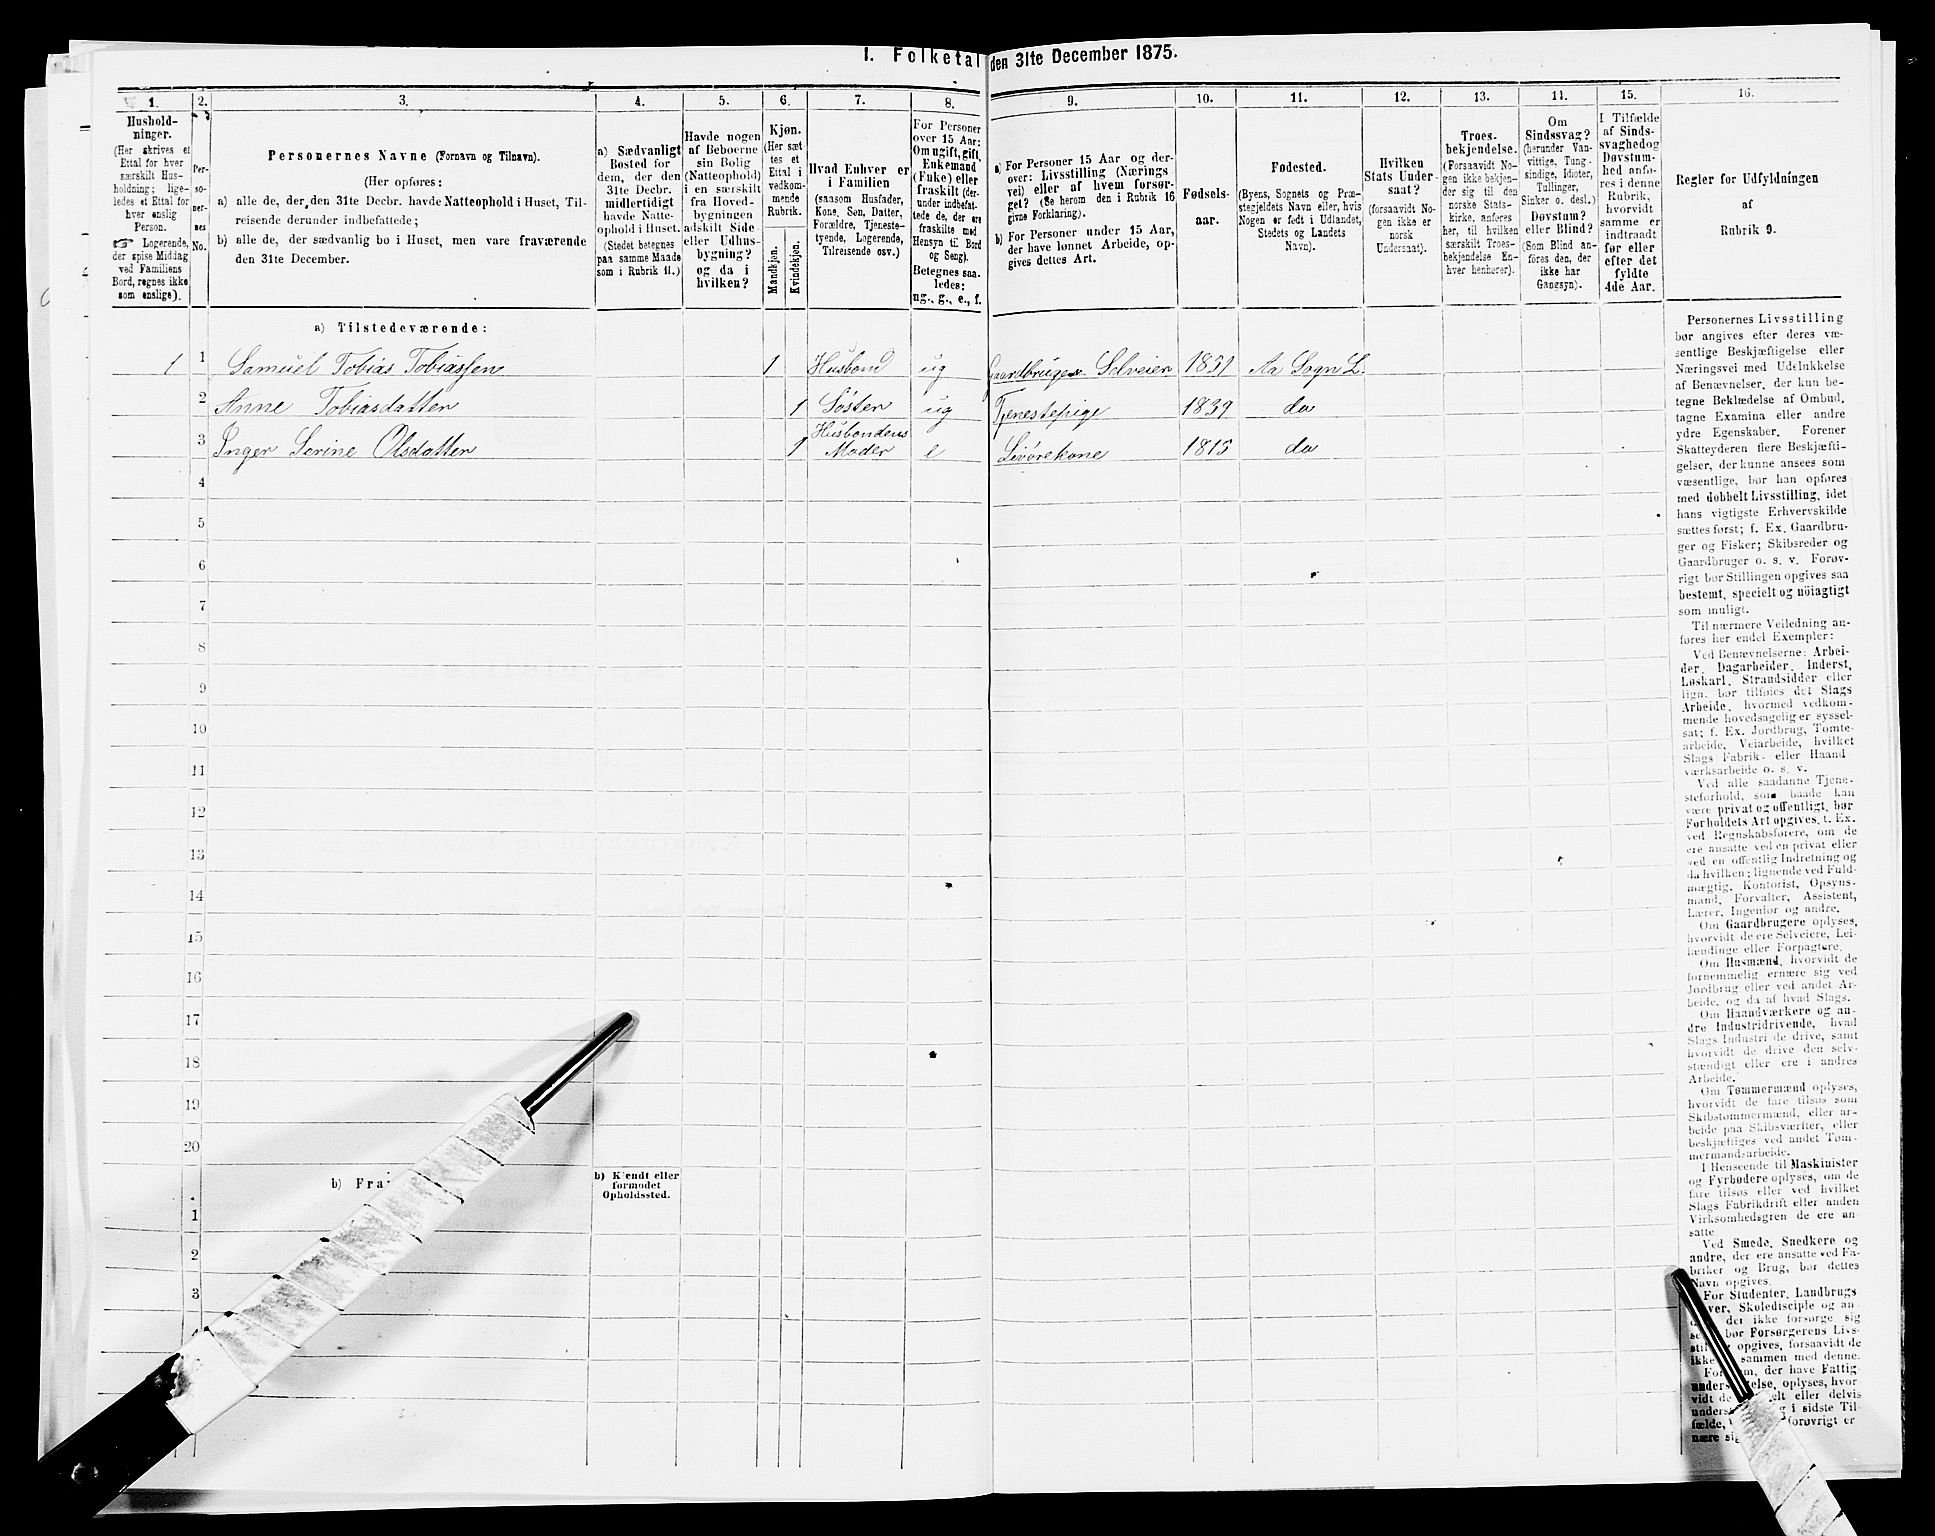 I. Folketal den 31te December 1875.
1. 2. 3. 4. 5. 6. 7. 8. 9. 10. 11. 12. 13. 14. 15. 16.
Hushold-
ninger.
(Her skrives et
Ettal for hver
særskilt Hus-
holdning; lige-
ledes et Ettal for
hver enslig
Person.
☞ Logerende,
der spise Middag
ved Familiens
Bord, regnes ikke
som enslige).
Per-
so-
ner-
nes
No.
Personernes Navne (Fornavn og Tilnavn).
(Her opføres:
a) alle de, der den 31te Decbr. havde Natteophold i Huset, Til-
reisende derunder indbefattede;
b) alle de, der sædvanlig bo i Huset, men vare fraværende
den 31te December.
a) Sædvanligt
Bosted for
dem, der den
31te Decbr.
midlertidigt
havde Natte-
ophold i Huset.
(Stedet betegnes
paa samme Maade
som i Rubrik 11.)
Havde nogen
af Beboerne
sin Bolig
(Natteophold)
i en særskilt
fra Hoved-
bygningen
adskilt Side-
eller Udhus-
bygning?
og da i
hvilken?
Kjøn.
(Her sæt-
tes et
Ettal i
vedkom-
mende
Rubrik.
Mandkjøn.
Kvindekjøn.
Hvad Enhver er
i Familien
(saasom Husfader,
Kone, Søn, Datter,
Forældre, Tjeneste-
tyende, Logerende,
Tilreisende osv.)
For Personer
over 15 Aar:
Om ugift, gift,
Enkemand
(Enke) eller
fraskilt (der-
under indbefat-
tede de, der ere
fraskilte med
Hensyn til Bord
og Seng).
Betegnes saa-
ledes:
ug., g., e., f.
a) For Personer 15 Aar og der-
over: Livsstilling (Nærings-
vei) eller af hvem forsør-
get? (Se herom den i Rubrik 16
givne Forklaring).
b) For Personer under 15 Aar,
der have lønnet Arbeide, op-
gives dettes Art.
Fødsels-
aar.
Fødested.
(Byens, Sognets og Præ-
stegjeldets Navn eller, hvis
Nogen er født i Udlandet,
Stedets og Landets
Navn).
Hvilken
Stats Under-
saat?
(forsaavidt No-
gen ikke er
norsk
Undersaat).
Troes-
bekjendelse.
(Forsaavidt No-
gen ikke bekjen-
der sig til den
norske Stats-
kirke, anføres
her, til hvilken
særskilt Troes-
bekjendelse En-
hver henhører).
Om
Sindssvag?
(herunder Van-
vittige, Tung-
sindige, Idioter,
Tullinger,
Sinker o. desl.)
Døvstum?
eller Blind?
(Som Blind an-
føres den, der
ikke har
Gangsyn).
I Tilfælde
af Sinds-
svaghed og
Døvstum-
hed anfø-
res i denne
Rubrik,
hvorvidt
samme er
indtraadt
før eller
efter det
fyldte
4de Aar.
Regler for Udfyldningen
af
Rubrik 9.
a) Tilstedeværende:
1 1 Samuel Tobias Tobiassen 1 Husbond ug Gaardbruger Selveier 1851 Aa Sogn L.
2 Anne Tobiasdatter 1 Søster ug Tjenestepige 1839 do
3 Inger Serine Olsdatter 1 Husbondens Moder e Livørekone 1815 do
4
5
6
7
8
9
10
11
12
13
14
15
16
17
18
19
20
b) Fra
b) Kjendt eller
formodet
Opholdssted.
1
2
3
4
Personernes Livsstilling
bør angives efter deres væ-
sentlige Beskjæftigelse eller
Næringsvei med Udelukkelse
af Benævnelser, der kun be-
tegne Beklædelse af Ombud,
tagne Examina eller andre
ydre Egenskaber. Forener
Skatteyderen flere Beskjæfti-
gelser, der kunne ansees som
væsentlige, bør han opføres
med dobbelt Livsstilling, idet
hans vigtigste Erhvervskilde
sættes først; f. Ex. Gaardbru-
ger og Fisker; Skibsreder og
Gaardbruger o. s. v. Forøv-
rigt bør Stillingen opgives saa
bestemt, specielt og nöiagtigt
som muligt.
Til nærmere Veiledning an-
føres her endel Exempler:
Ved Benævnelserne: Arbei-
der, Dagarbeider, Inderst,
Løskarl, Strandsidder eller
lign. bør tilføies det Slags
Arbeide, hvormed vedkom-
mende hovedsagelig er syssel-
sat; f. Ex. Jordbrug, Tomte-
arbeide, Veiarbeide, hvilket
Slags Fabrik- eller Haand-
værksarbeide o. s. v.
Ved alle saadanne Tjene-
steforhold, som baade kan
være privat og offentligt, bør
Forholdets Art opgives, t. Ex.
ved Regnskabsførere, om de
ere ansatte ved en privat eller
ved en offentlig Indretning og
da hvilken; lignende ved Fuld-
mægtig, Kontorist, Opsyns-
mand, Forvalter, Assistent,
Lærer, Ingeniør og andre.
Om Gaardbrugere oplyses,
hvorvidt de ere Selveiere, Lei-
lændinge eller Forpagtere.
Om Husmænd, hvorvidt de
fornemmelig ernære sig ved
Jordbrug eller ved andet Ar-
beide, og da af hvad Slags.
Om Haandværkere og an-
dre Industridrivende, hvad
Slags Industri de drive, samt
hvorvidt de drive den selv-
stændigt eller ere i andres
Arbeide.
Om Tømmermænd oplyses,
hvorvidt de fare tilsøs som
Skibstømmermænd, eller ar-
beide paa Skibsværfter, eller
beskjæftiges ved andet Tøm-
mermandsarbeide.
I Henseende til Maskinister
og Fyrbødere oplyses, om de
fare tilsøs eller ved hvilket
Slags Fabrikdrift eller anden
Virksomhedsgren de ere an-
satte
Ved Smede, Snedkere og
andre, der ere ansatte ved Fa-
briker og Brug, bør dettes
Navn opgives.
For Studenter, Landbrugs
ver, Skoledisciple og an-
der ikke forsørge sig
bør Forsørgerens Livs-
opgives, forsaavidt de
ikke sammen med denne.
For der have Fattig-
oplyses, hvor-
vidt de eller delvis
i sidste Til-
fælde, forøvrigt er-
nære sig